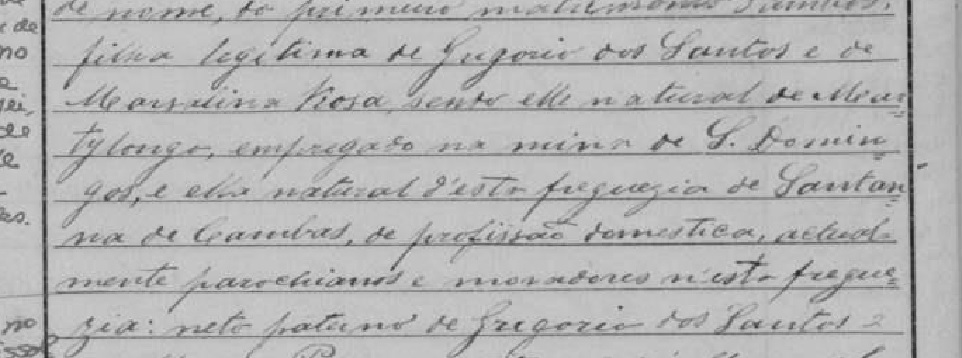 de nome, do primeiro matrimonio d'ambos,
filha legitima de Gregorio dos Santos e de
Marsalina Rosa, sendo elle natural de Mar=
tylongo, empregado na mina de S. Domin=
gos, e ella natural d'esta freguezia de Santan=
na de Cambas, de profissão domestica, actual
mente parochianos e moradores n'esta fregue=
zia: neto paterno de Gregorio dos Santos e